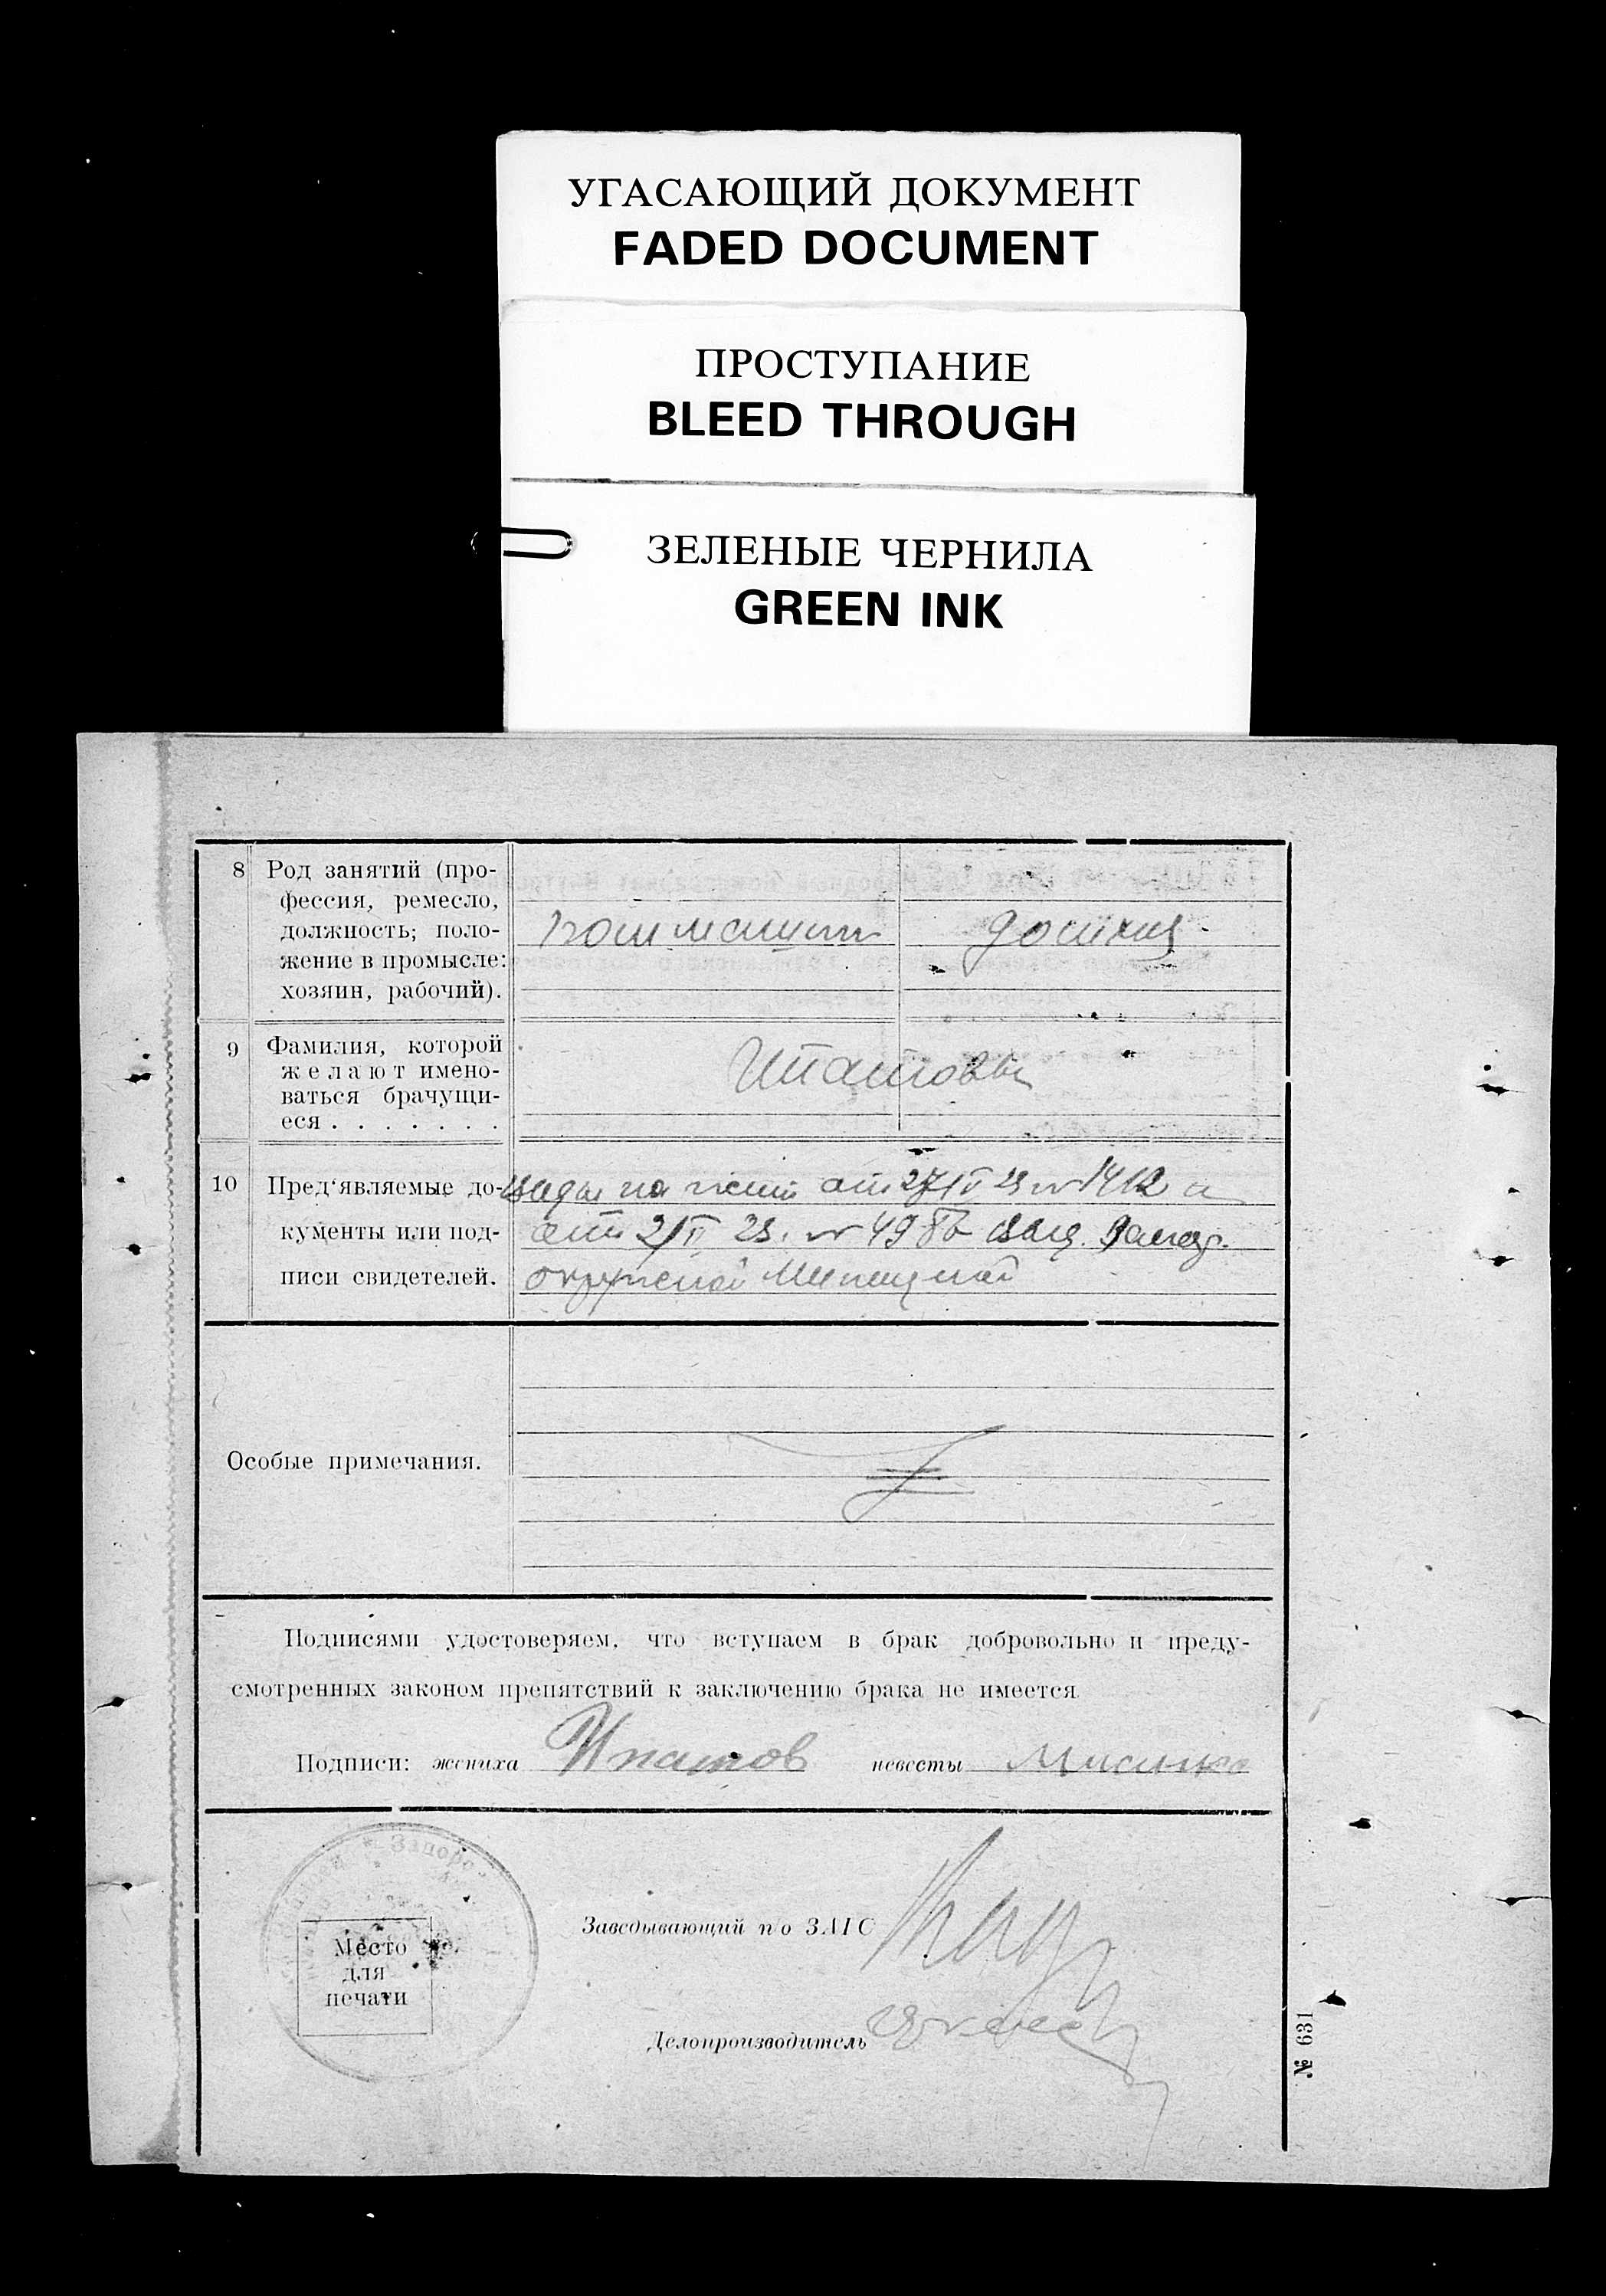 УГАСАЮЩИЙ ДОКУМЕНТ
FADED DOCUMENT
ПРОСТУПАНИЕ
BLEED THROUGH
ЗЕЛЕНЫЕ ЧЕРНИЛА
GREEN INK
8 Род занятий (про-
фессия, ремесло,
должность; поло-
жение в промысле:
хозяин, рабочий).
9 Фамилия, которой
желают имено-
ваться брачущи-
еся . . . . . . .
Ипатовы
10 Пред'являемые до-
кументы или под-
писи свидетелей.
от 27/IV 23 № 1412 и
от 2/II 23. №
окружной Милицией
Особые примечания.
Подписями удостоверяем, что вступаем в брак добровольно и преду-
смотренных законом препятствий к заключению брака не имеется
Подписи: жениха Ипатов невесты
Запоро
Место
для
печати
Заведывающий по ЗАГС
Делопроизводитель
№ 631